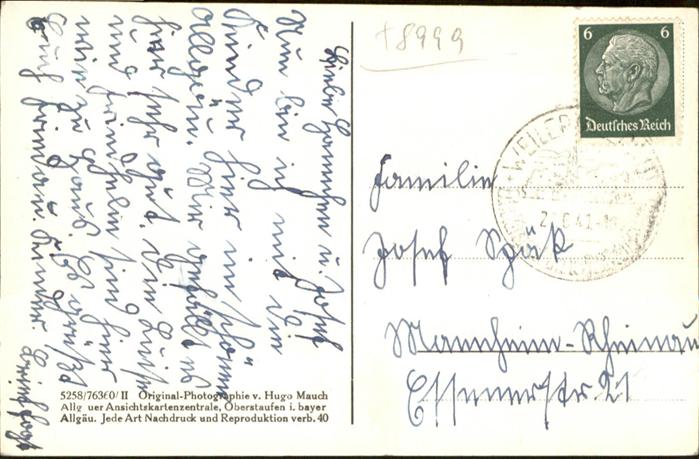 Liebe Hannchen u. Josef
Nun bin ich mit den
Kinder hier im schönen
Allgäu. Wir gefällt es
hier sehr gut. Die Luise
und Friedhelm sind hier
wie zu Haus. Es grüßt
Euch
+8999
6 6
Deutsches Reich
WEILER
Familie
Josef Späk
Mannheim-Rheinau
Essenerstr 21
5258/76360/II Original-Photographie v. Hugo Mauch
Allg uer Ansichtskartenzentrale, Oberstaufen i. bayer
Allgäu. Jede Art Nachdruck und Reproduktion verb. 40